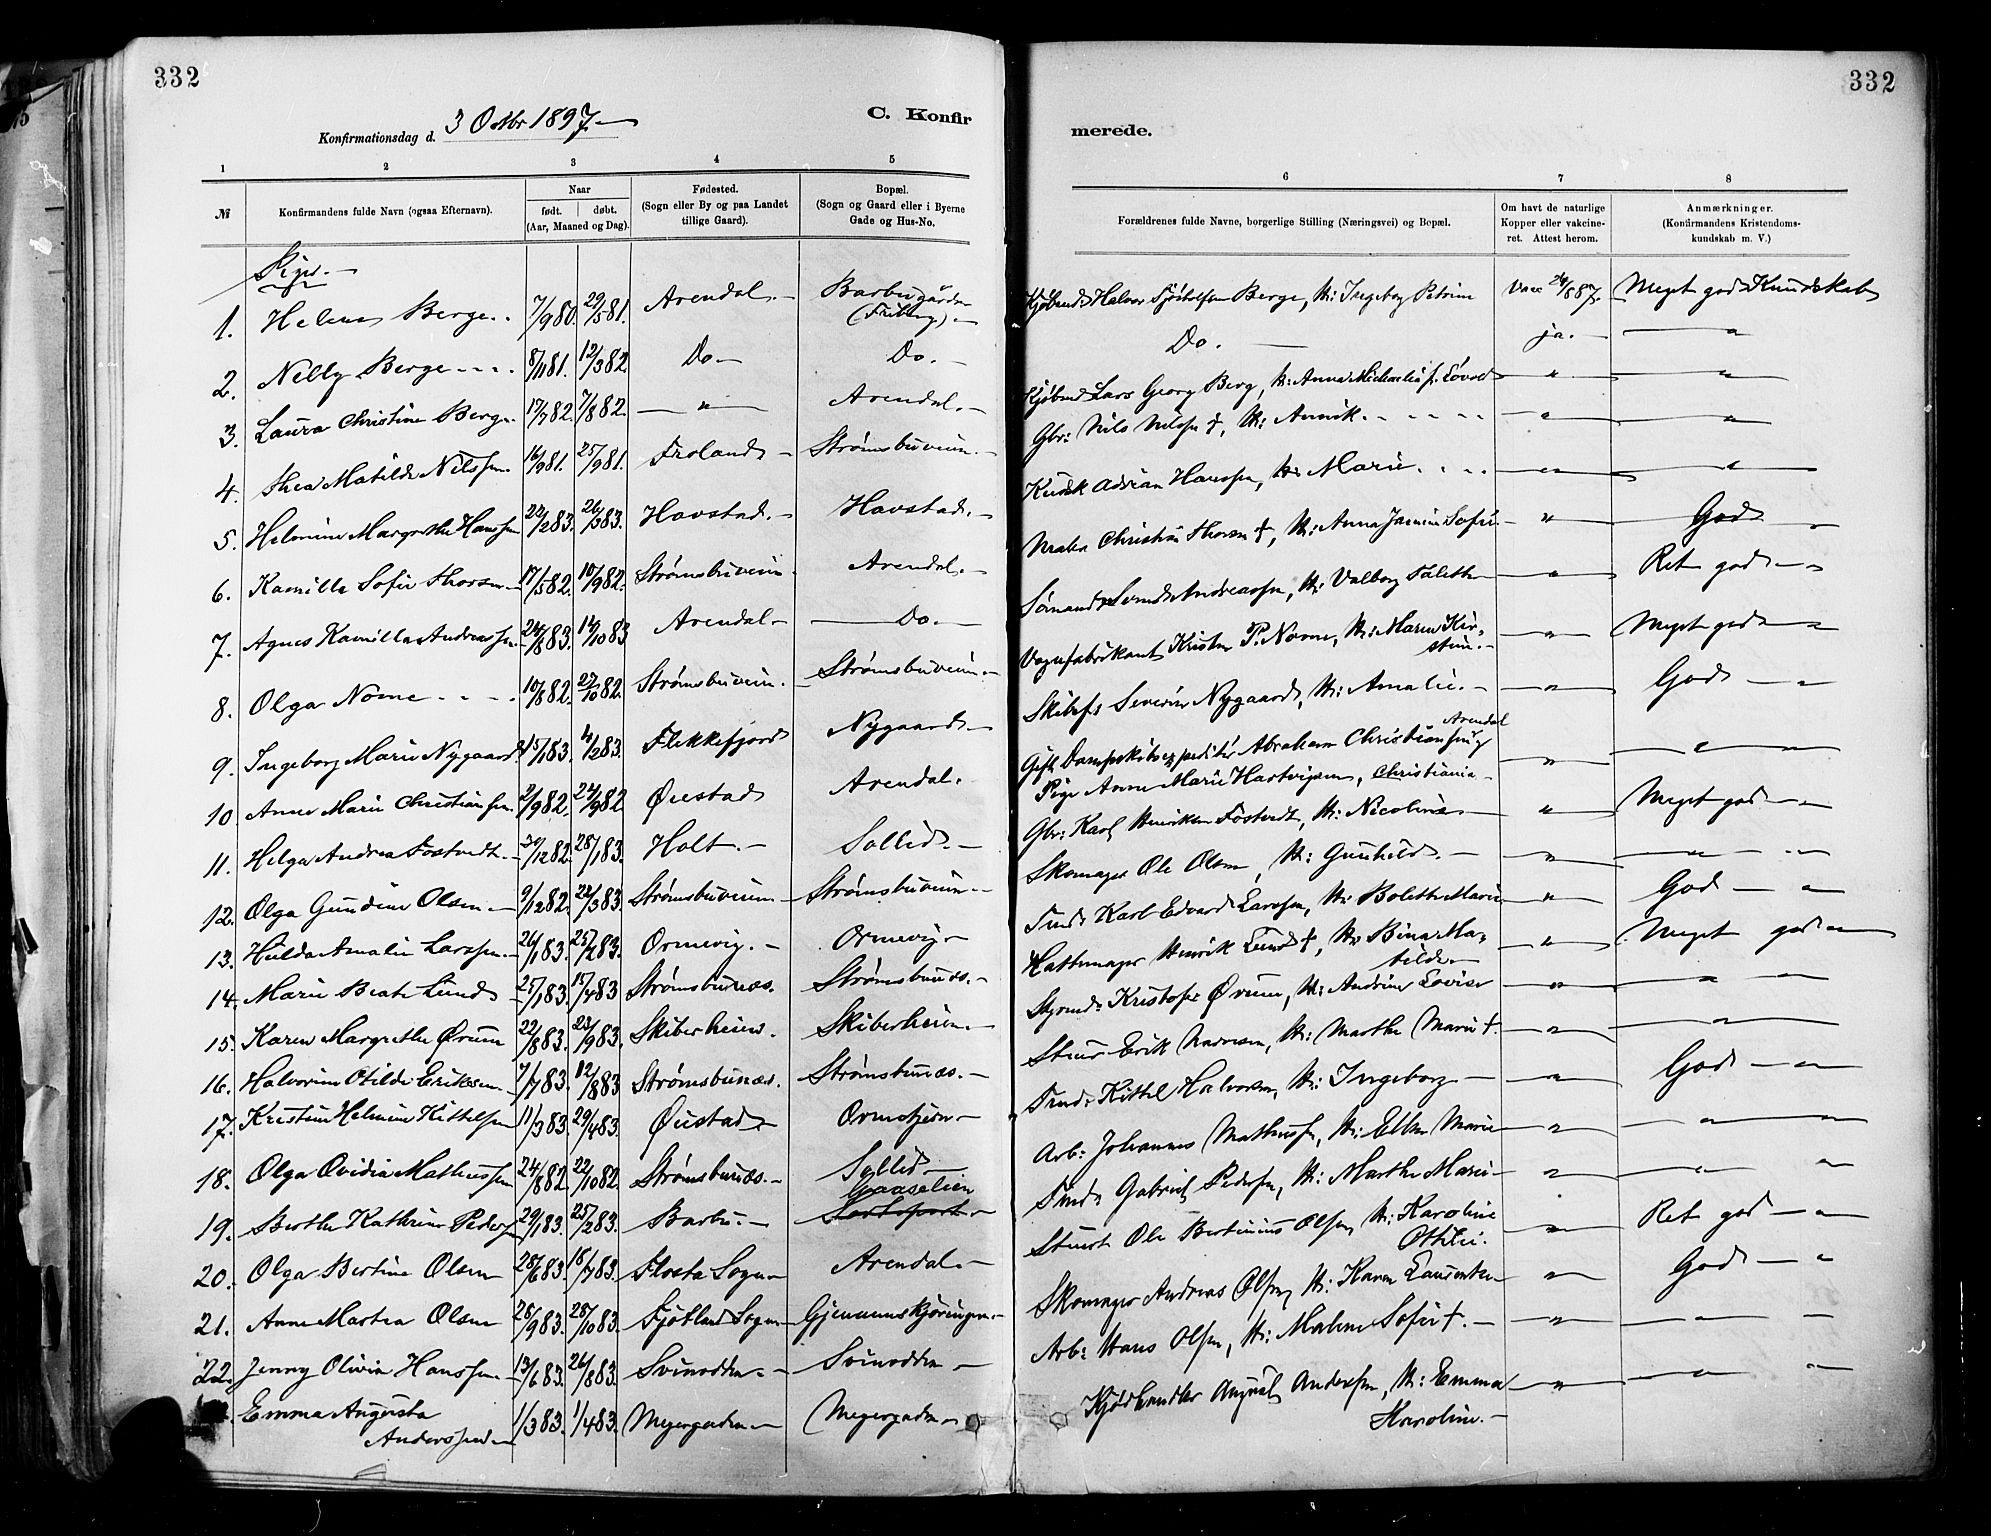 332
332
Konfirmationsdag d. 3 Oktbr 1897.
C. Konfir
merede.
1 2 3 4 5 6 7 8
№
Konfirmandens fulde Navn (ogsaa Efternavn).
Naar
født. døbt.
(Aar, Maaned og Dag).
Fødested.
(Sogn eller By og paa Landet
tillige Gaard).
Bopæl.
(Sogn og Gaard eller i Byerne
Gade og Hus-No.
Forældrenes fulde Navne, borgerlige Stilling (Næringsvei) og Bopæl.
Om havt de naturlige
Kopper eller vakcine-
ret. Attest herom.
Anmærkninger.
(Konfirmandens Kristendoms-
kundskab m. V.)
Piger.
1. Helene Berge. 7/9 80. 29/5 81. Arendal. Barbugården Halvor Berge, H: Ingeborg Petrine Vacc 24/8 87. Meget god Kundskab
2. Nelly Berge 8/11 81. 12/3 82. Do Do. Do. ja. "
3. Laura Christine Berg. 17/7 82. 7/8 82. " Arendal. Lars Georg Berg, H: Anna f. " "
4. Thea Matilde Nilssen 16/9 81. 25/9 81. Froland Strømsbuveien Gbr: Nils Nilssen †, H: Annik. " "
5. Helmine Margrethe Hanssen 22/2 83. 26/3 83. Havstad. Havstad. Kudsk Adrian Hanssen, H: Marie. " "
6. Kamilla Sofie Thorsen 17/5 82. 10/9 82. Strømsbuveien Arendal. Maler Christian Thorsen †, H: Anna Sofie " God "
7. Agnes Kamilla Andreassen 24/8 83. 14/10 83 Arendal Do. Sømand Andreassen, H: Valborg " Ret god "
8. Olga Nome 10/8 82. 22/10 82. Strømsbuveien. Strømsbuveien. Vognfabrikant Kristen P. Nome, H: Maren Kir-
stine. " Meget god "
9. Ingeborg Marie Nygaard 15/1 83. 4/2 83. Flekkefjord Nygaard Skibsf: Severin Nygaard, H: Amalie. " God "
10. Anne Marie Christiansen. 2/9 82. 24/9 82 Øiestad Arendal. Gift Dampskibsexpeditør Abraham Christiansen Arendal
Pige Anne Marie Hartvigsen, Christiania " "
11. Helga Andrea Fostvedt. 30/12 82. 28/1 83. Holt. Sollid. Gbr: Karl Henriksen Fostvedt, H: Nicoline " Meget god "
12. Olga Gundine Olsen 9/12 82. 22/3 83. Strømsbuveien Strømsbuveien. Skomager Ole Olsen, H: Gunhild. " "
13. Hulda Amalie Larssen. 26/1 83. 25/2 83. Ormevig. Ormevig Karl Edvard Larssen, H: Bolette Marie " God "
14. Marie Beate Lund 25/1 83. 15/4 83 Strømsbunæs. Strømsbunæs. Hattemager Henrik Lund †, H: Bina Ma-
tilde " Meget god
15. Karen Margrethe Ørum 22/8 83. 23/9 83. Skiberheien. Skiberheien. Kristofer Ørum, H: Andrine Lovise " "
16. Halvorine Otilde Eriksen. 7/7 83. 12/8 83 Strømsbunæs. Strømsbunæs. Stuer Erik H: Marthe Marie †. " "
17. Kristine Helmine Kittelsen 11/3 83. 29/4 83. Øiestad Ormetjern Kittel Halvorsen, H: Ingeborg " God "
18. Olga Ovidia Mathiassen 24/8 82. 22/10 82. Strømsbunæs. Sollid Arb: Johannes H: Ellen Marie " "
19. Berthe Kathrine Pedersen 29/1 83. 25/2 83. Barbu. Gaaselien Gabriel Pedersen, H: Marthe Marie " "
20. Olga Bertine Olsen 28/6 83. 18/7 83. Flosta Sogn Arendal. Stuert Ole Bertinius Olsen, H: Karoline
Othilie. " Ret god "
21. Anne Martea Olsen 26/9 83. 28/10 83. Fjotland Sogn Skomager Andreas Olsen, H: Karen " God "
22. Jenny Olivia Hanssen. 13/6 83. 26/8 83. Svinodden. Svinodden Arb: Hans Olsen, H: Malene Sofie †. " "
Emma Augusta
Anderssen 1/3 83. 1/4 83. Meyergaden Meyergaden Kjødhandler August Anderssen, H: Emma
Karoline. " "